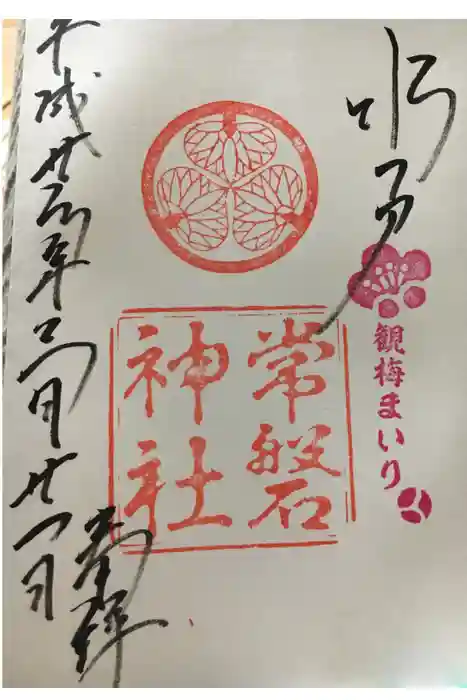 水戸
観梅まいり
常磐
神社
奉拝
平成廿年月廿一日